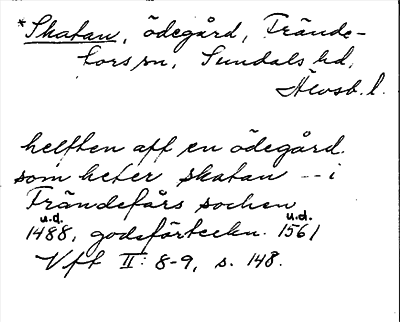 *Skatan, ödegård, Frände-
fors sn, Sundals hd,
Älvsb. l.
helften aff en ödegård
som heter skatan -- i
Frändefårs sochen
u.d. u.d.
1488, godsförteckn. 1561
Vft II: 8-9, s. 148.